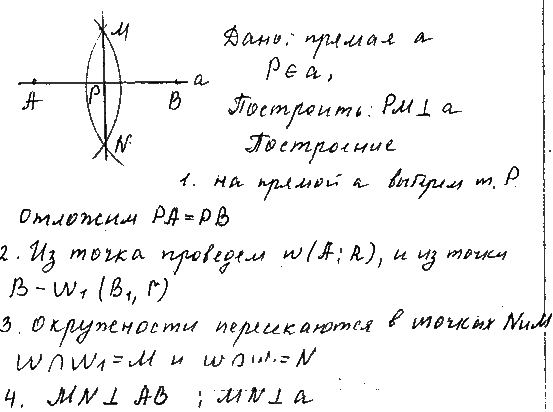 M
Дано: прямая a
P∈a,
A P B a
Построить: PM⊥a
N
Построение
1. на прямой a выберем т. P.
отложим PA=PB
2. Из точка проведем w(A;R), и из точки
B – W₁ (B₁, r)
3. Окружности пересекаются в точках N и M
W∩W₁=M и w∩w₁=N
4. MN⊥AB ; MN⊥a